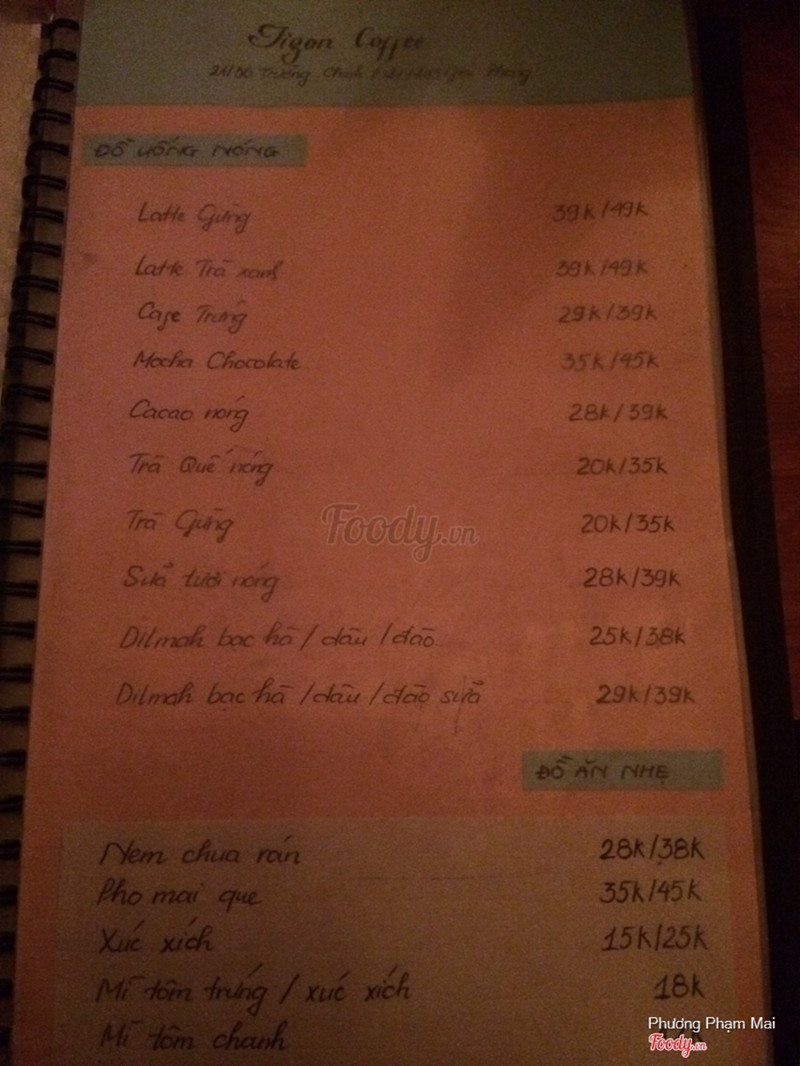 Tigon Coffee
21/50 Trường Chinh /
ĐỒ UỐNG NÓNG
Latte Gừng 39k/49k
Latte Trà xanh 39k/49k
Cafe Trứng 29k/39k
Mocha Chocolate 35k/45k
Cacao nóng 28k/39k
Trà Quế nóng 20k/35k
Trà Gừng 20k/35k
Foody.vn
Sữa tươi nóng 28k/39k
Dilmah bạc hà / dâu / đào 25k/38k
Dilmah bạc hà / dâu / đào sữa 29k/39k
ĐỒ ĂN NHẸ
Nem chua rán 28k/38k
Pho mai que 35k/45k
Xúc xích 15k/25k
Mì tôm trứng / xúc xích 18k
Mì tôm chanh
Phương Phạm Mai
Foody.vn